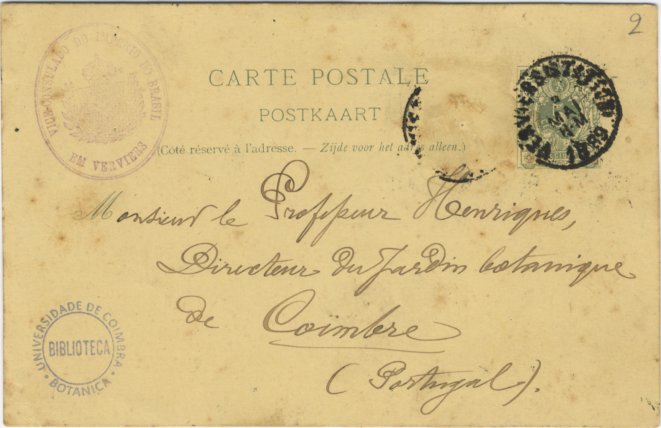 2
VICE-CONSULADO DO IMPERIO DO BRASIL
EM VERVIERS
CARTE POSTALE
POSTKAART
(Côté réservé à l'adresse. — Zijde voor het adres alleen.)
VERVIERS (STATION)
MAI
1889
Monsieur le Professeur Henriques,
Directeur du Jardin botanique
de Coimbre
(Portugal).
UNIVERSIDADE DE COIMBRA
BIBLIOTECA
BOTANICA